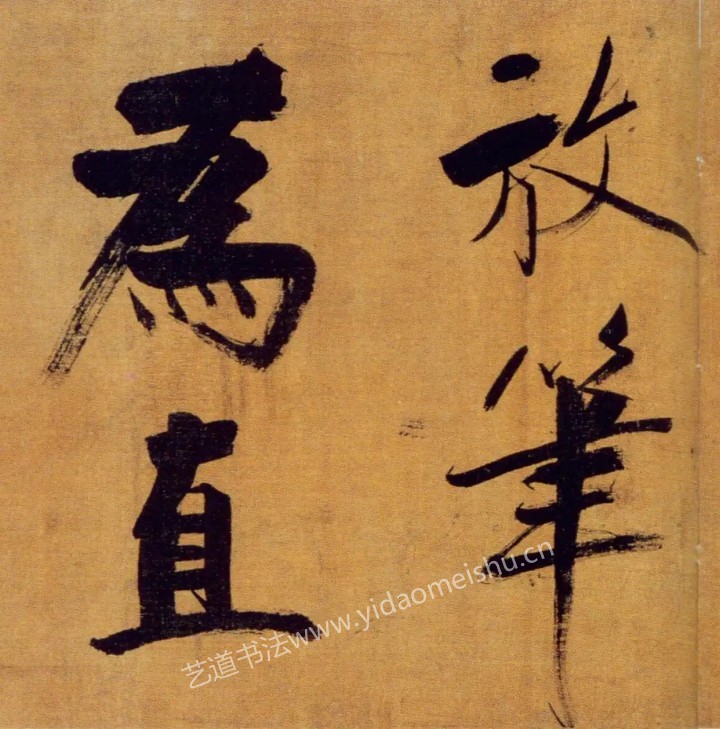 放筆
為直
艺道书法www.yidaomeishu.cn